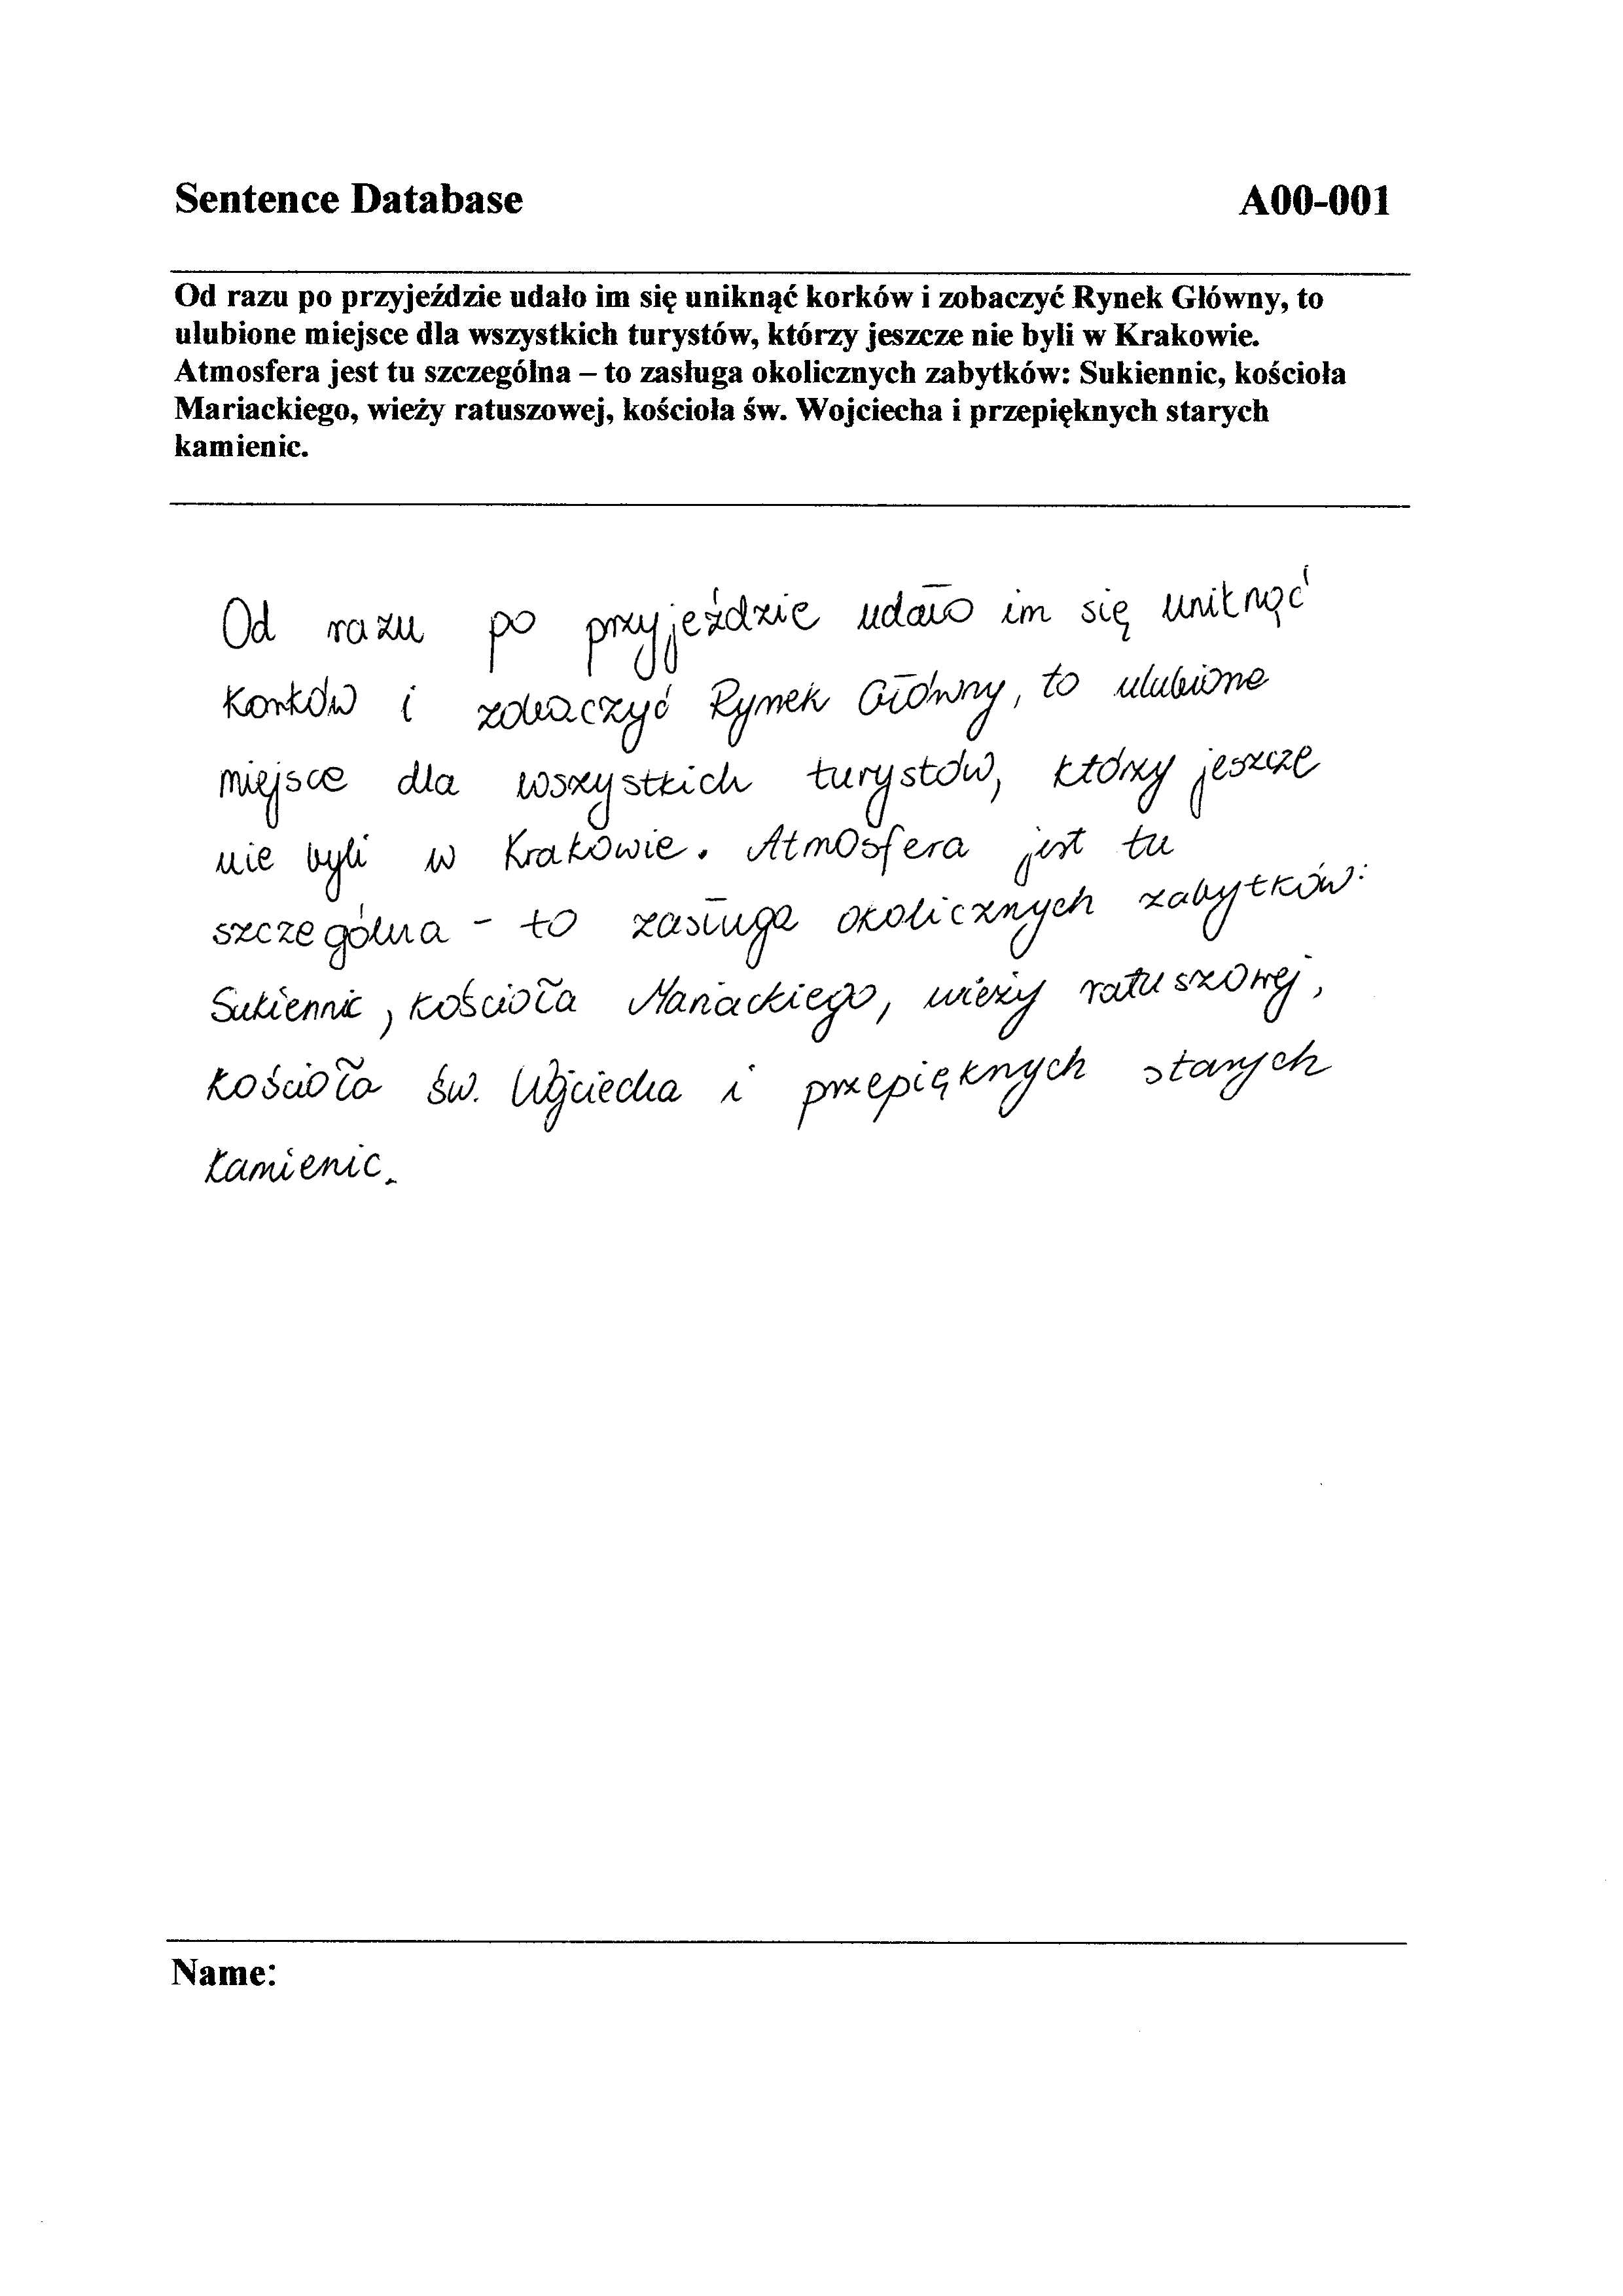 Sentence Database A00-001
Od razu po przyjeździe udało im się uniknąć korków i zobaczyć Rynek Główny, to
ulubione miejsce dla wszystkich turystów, którzy jeszcze nie byli w Krakowie.
Atmosfera jest tu szczególna – to zasługa okolicznych zabytków: Sukiennic, kościoła
Mariackiego, wieży ratuszowej, kościoła św. Wojciecha i przepięknych starych
kamienic.
Od razu po przyjeździe udało im się uniknąć
korków i zobaczyć Rynek Główny, to ulubione
miejsce dla wszystkich turystów, którzy jeszcze
nie byli w Krakowie. Atmosfera jest tu
szczególna - to zasługa okolicznych zabytków:
Sukiennic, kościoła Mariackiego, wieży ratuszowej,
kościoła św. Wojciecha i przepięknych starych
kamienic.
Name: